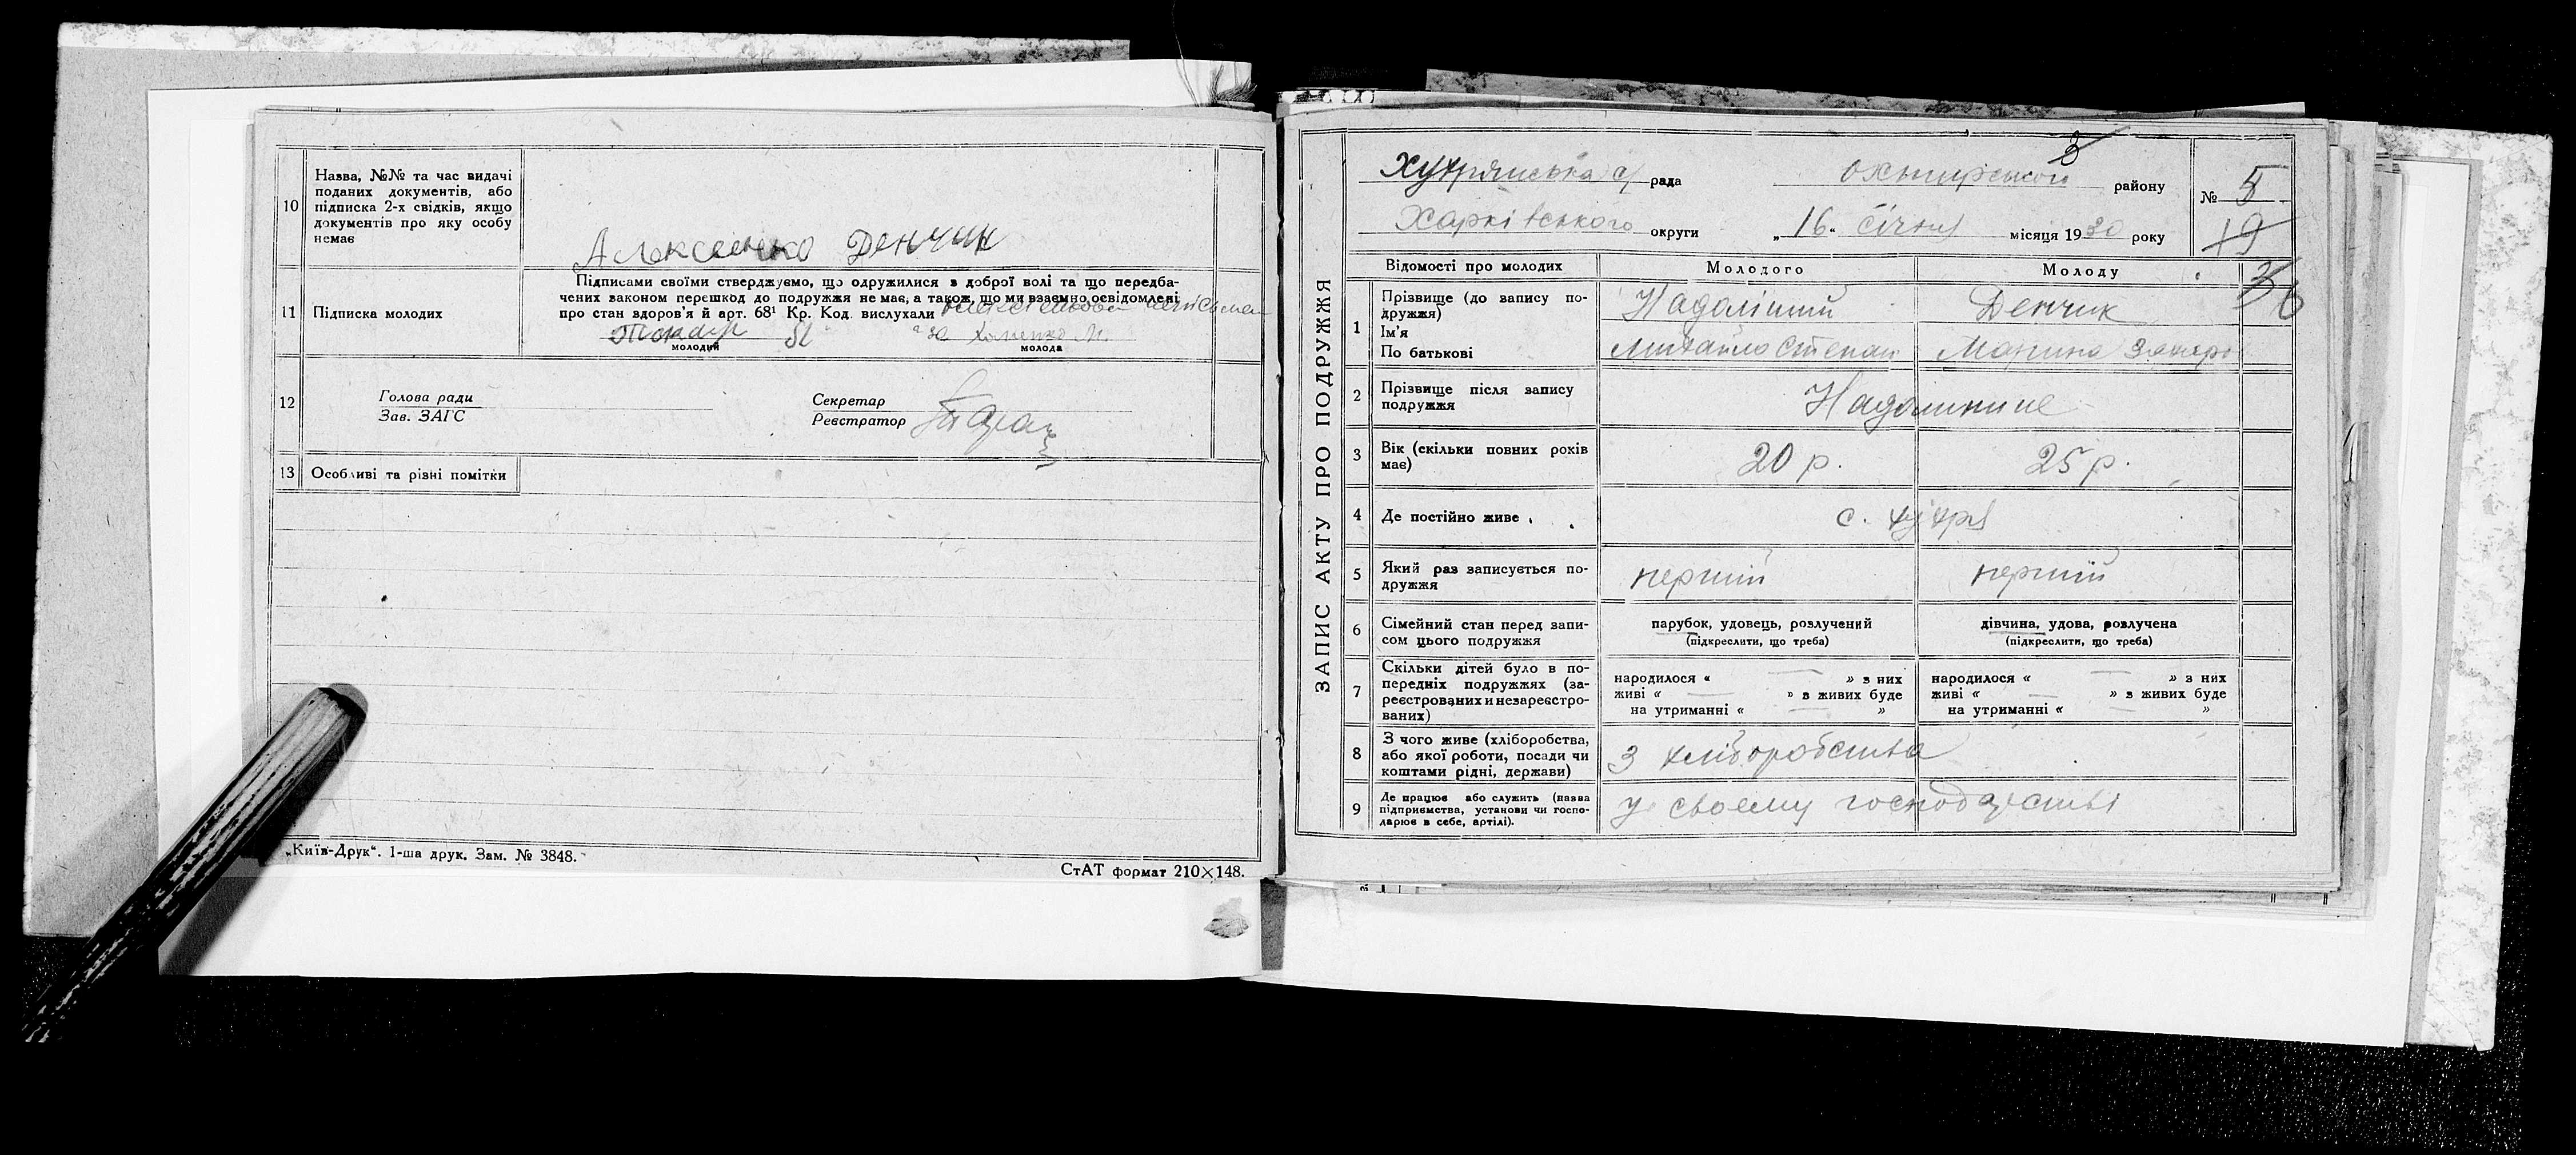 10 Назва, №№ та час видачі
поданих документів, або
підписка 2-х свідків, якщо
документів про яку особу
немає
Алексенко Денчик
11 Підписка молодих
Підписами своїми стверджуємо, що одружилися з доброї волі та що передба-
чених законом перешкод до подружжя немає, а також, що ми взаємно освідомлені
про стан здоров'я й арт. 68¹ Кр. Код. вислухали
молодий за молода
12 Голова ради
Зав. ЗАГС
Секретар
Реєстратор
13 Особливі та різні помітки
„Київ-Друк“. 1-ша друк. Зам. № 3848.
СтАТ формат 210×148.
ЗАПИС АКТУ ПРО ПОДРУЖЖЯ
3
Хухрянська с/ рада охтирського району № 5
Харківського округи „16“ січня місяця 1930 року 19
Відомості про молодих Молодого Молоду
1 Прізвище (до запису по-
дружжя)
Ім'я
По батькові
Надолішній Денчик
Михайло Степан Марина Захарі
2 Прізвище після запису
подружжя
3 Вік (скільки повних рохів
має)
20 р. 25 р.
4 Де постійно живе с. Хухря
5 Який раз записується по-
дружжя
перший перший
6 Сімейний стан перед запи-
сом цього подружжя
парубок, удовець, розлучений дівчина, удова, розлучена
(підкреслити, що треба) (підкреслити, що треба)
7 Скільки дітей було в по-
передніх подружжях (за-
реєстрованих и незареєстро-
ваних)
народилося « » з них народилося « » з них
живі « » з живих буде живі « » з живих буде
на утриманні « » на утриманні « »
8 З чого живе (хліборобства,
або якої роботи, посади чи
коштами рідні, держави)
З хліборобства
9 Де працює або служить (назва
підприємства, установи чи госпо-
дарює в себе, артілі).
у своєму господарстві